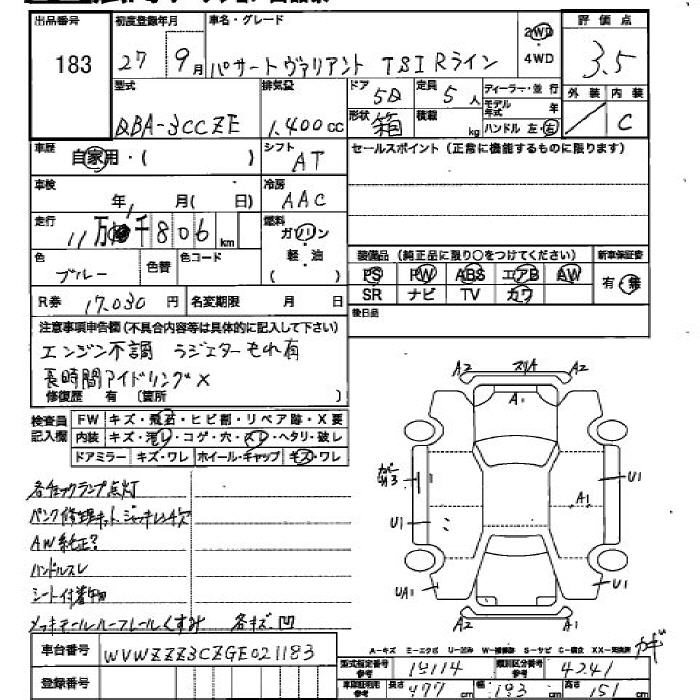 出品番号 初度登録年月 車名・グレード 評価点
183 27 9月 パサートヴァリアント TSI Rライン 2WD ・ 4WD 3.5
型式 排気量 ドア 定員 ディーラー・並行 外装 内装
QBA-3CCZE 1,400cc 5D 5人 モデル年式 年 C
形状 箱 積載 kg ハンドル 左・右
車歴 自家用・( ) シフト AT セールスポイント (正常に機能するものに限ります)
車検 年 月( 日) 冷房 AAC
走行 11万 千806km 燃料 ガソリン・軽・油 ( )
色 ブルー 色替 色コード
装備品 (純正品に限り○をつけてください) 新車保証書
PS PW ABS エアB AW 有・無
SR ナビ TV カワ
R券 17,030円 名変期限 月 日 後日品
注意事項申告欄(不具合内容等は具体的に記入して下さい)
エンジン不調 ラジエターもれ有
長時間アイドリング×
修復歴 有 (箇所 )
検査員記入欄 FW キズ・飛石・ヒビ割・リペア跡・X要
内装 キズ・汚レ・コゲ・穴・スレ・ヘタリ・破レ
ドアミラー キズ・ワレ ホイール・キャップ キズ・ワレ
各チェックランプ点灯
パンク修理キット、ジャッキレンチ欠
AW純正?
ハンドルスレ
シート付着物
メッキモールルーフレールくすみ 各キズ凹
A2 スリA A2
A1
U1
A1
U1
UA1 U1
A2 A1 A2
A-キズ E-エクボ U-凹み W-補修跡 S-サビ C-腐蝕 XX-交換済
車台番号 WVWZZZ3CZGE021183
登録番号
型式指定番号 参考 19114 類別区分番号 参考 4241
車体証明用 参考 長さ 477cm 幅 183cm 高さ 151cm